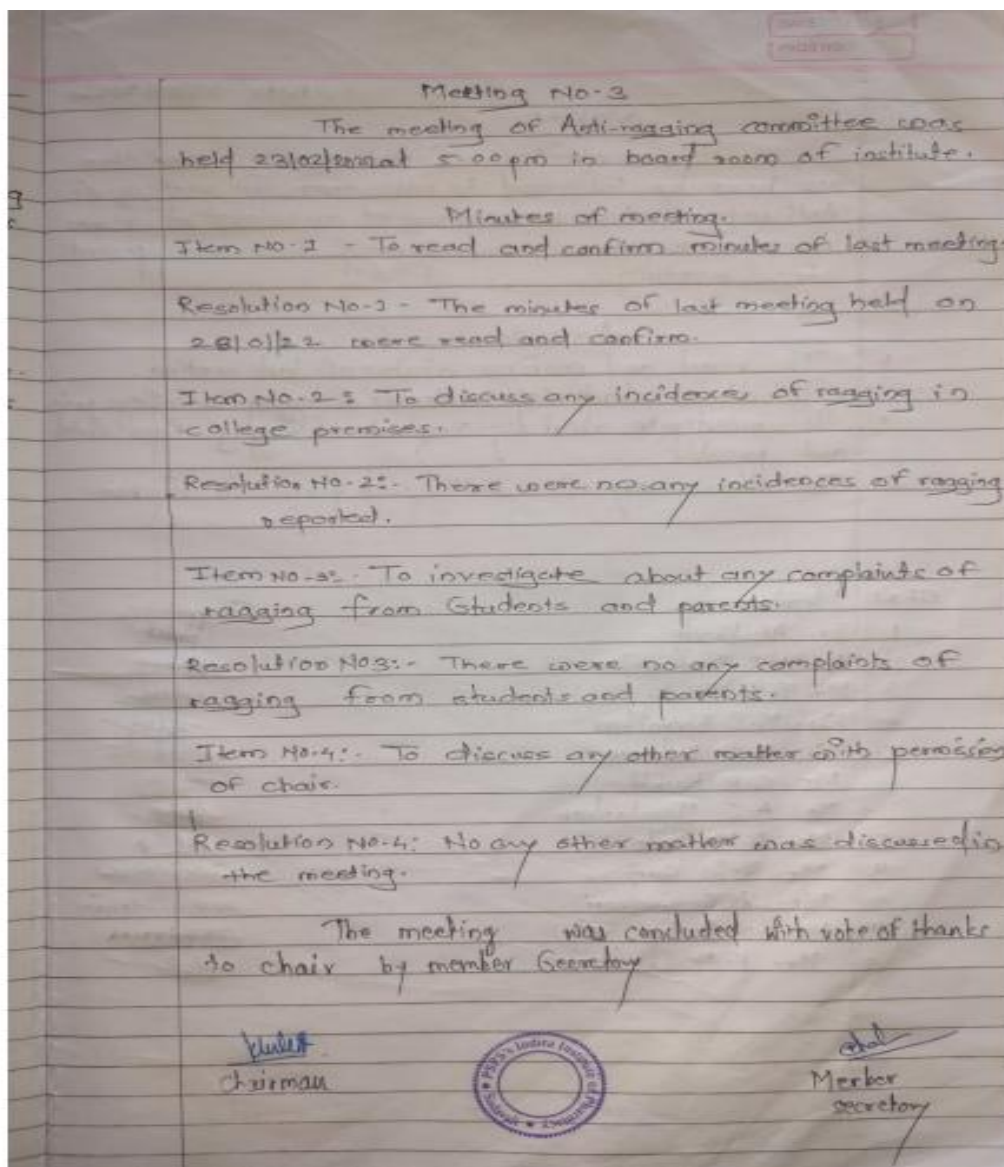 Meeting No-3
The meeting of Anti-ragging committee was
held 23/02/2022at 5.00pm in board room of institute.
Minutes of meeting.
Item No-1 - To read and confirm minutes of last meeting.
Resolution No-1 - The minutes of last meeting held on
28/01/22 were read and confirm.
Item No.-2: To discuss any incidence of ragging in
college premises.
Resolution No-2:- There were no any incidences of ragging
reported.
Item No-3:- To investigate about any complaints of
ragging from Students and parents.
Resolution No3:- There were no any complaints of
ragging from students and parents.
Item No.4:- To discuss any other matter with permission
of chair.
Resolution No-4: No any other matter was discussed in
the meeting.
The meeting was concluded with vote of thanks
to chair by member Secretory
Chairman
PSPS's Indira Institute of Pharmacy
Member
secretory